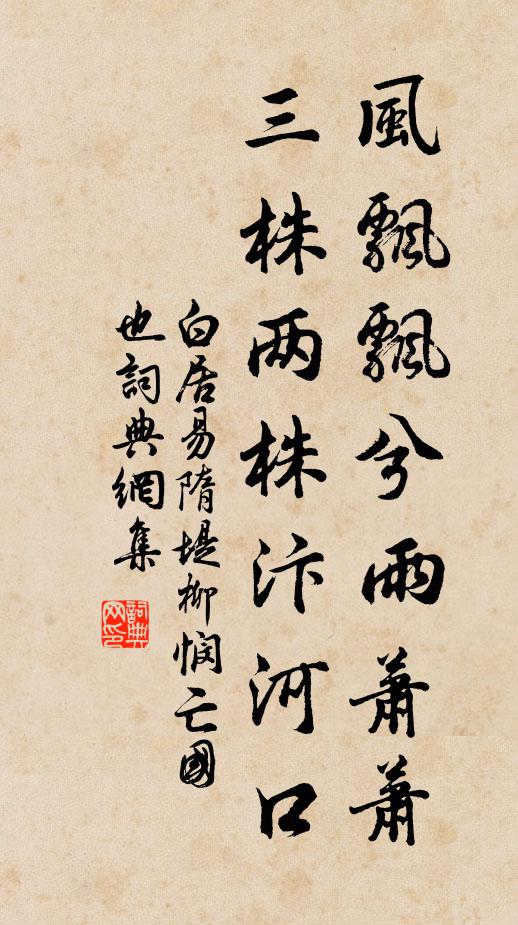 風飄飄兮雨蕭蕭
三株两株汴河口
白居易隋堤柳憫亡國
也詞典網集
詞典网印